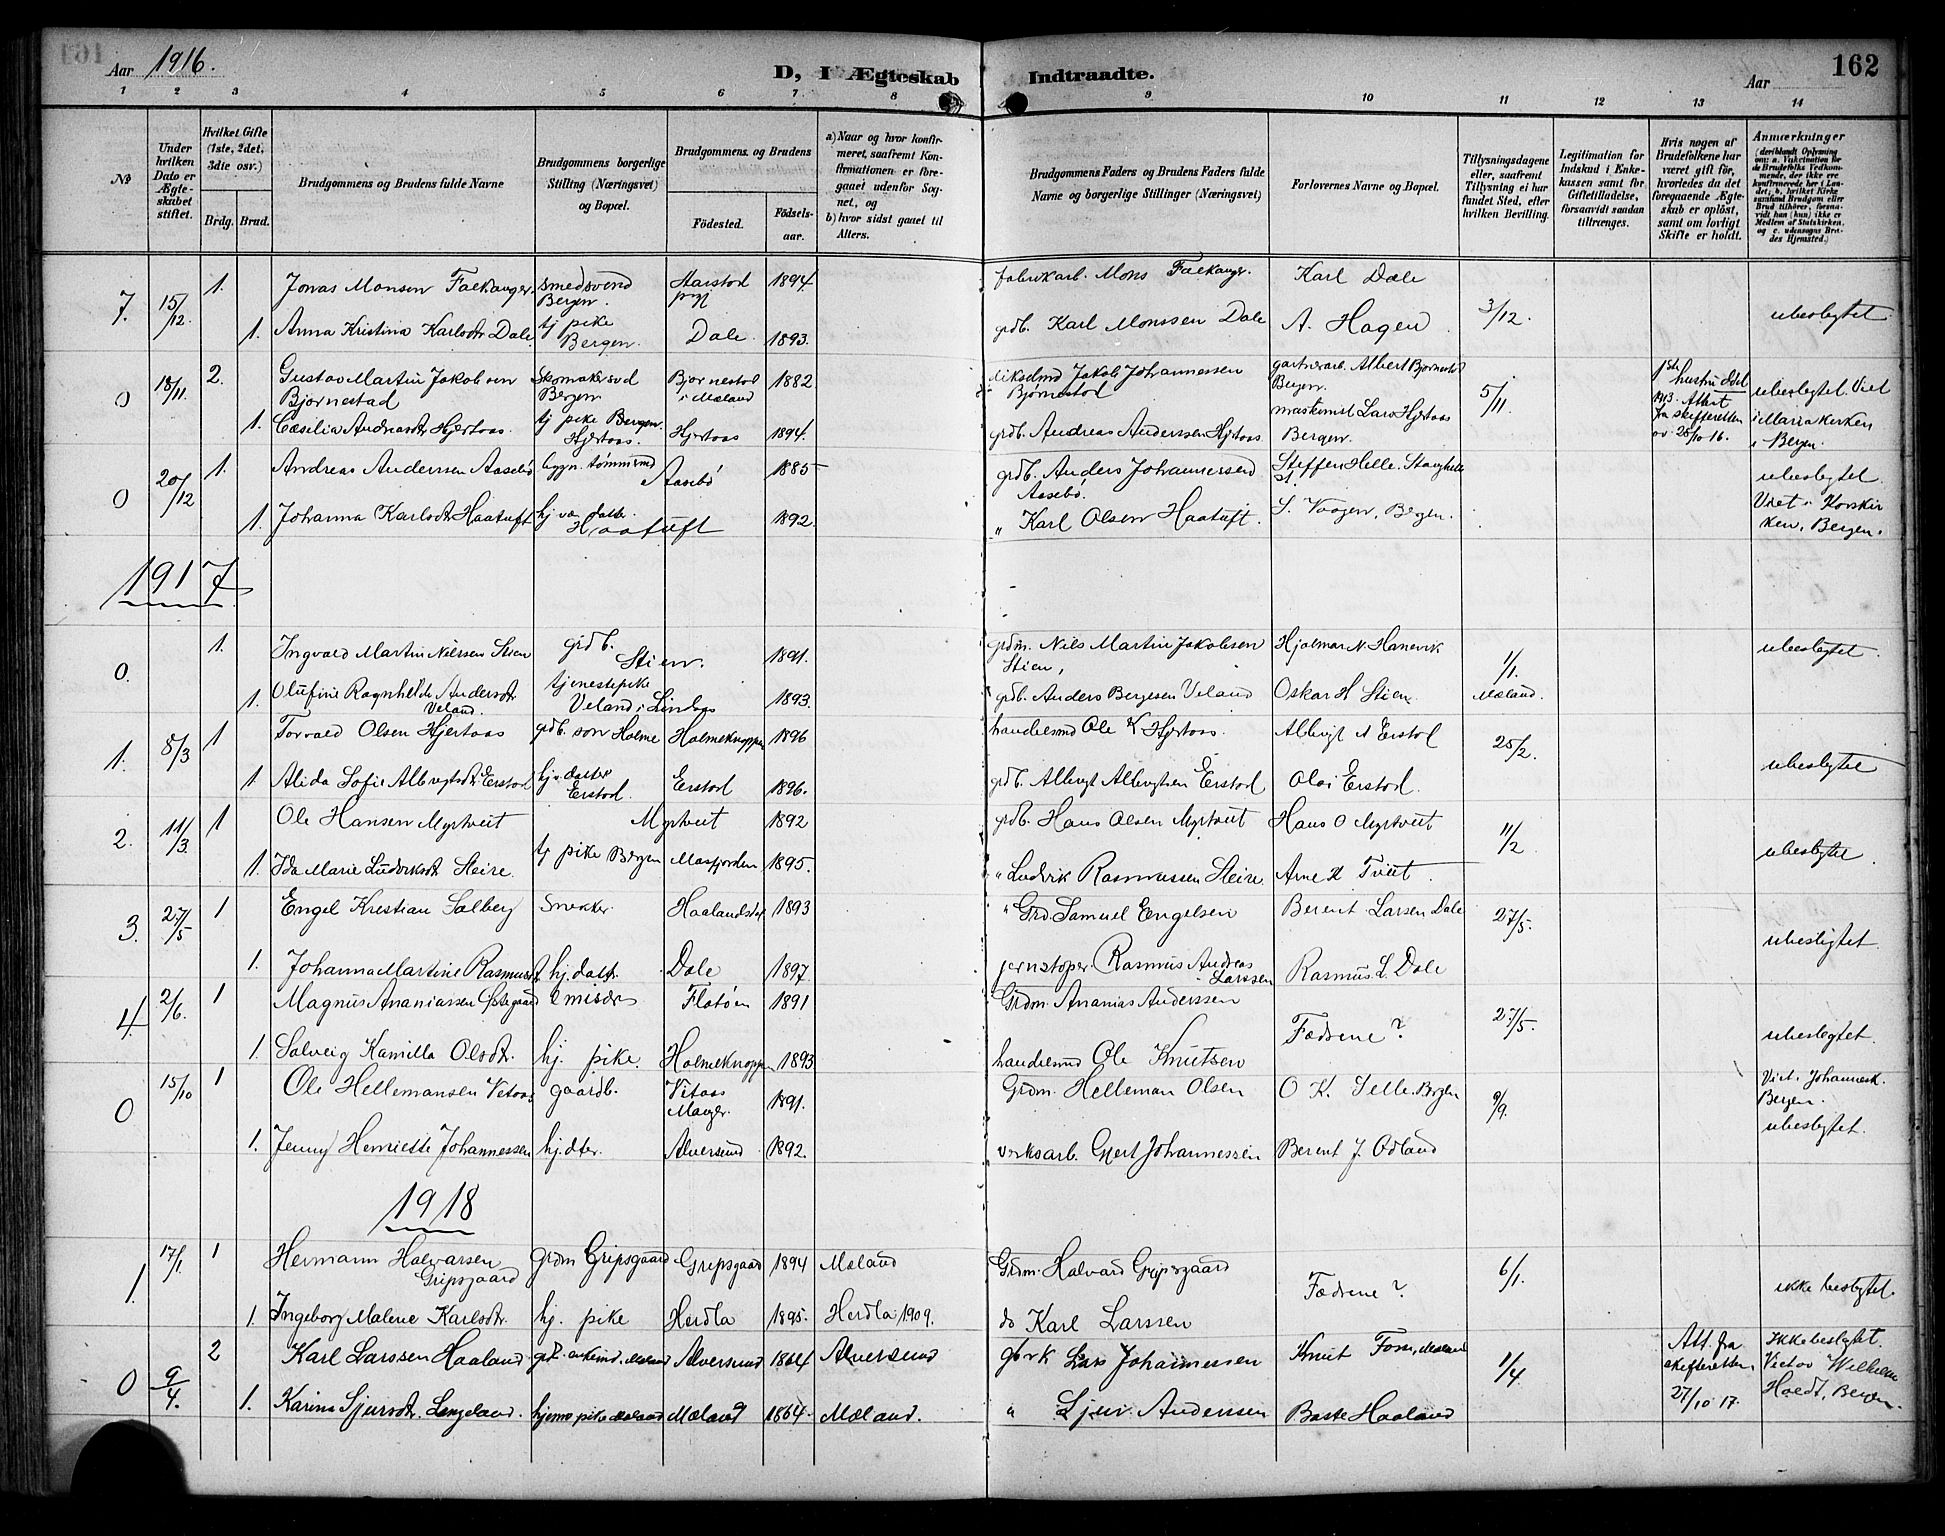 Aar 1916.
D, I Ægteskab Indtraadte.
Aar
162
1 2 3 4 5 6 7 8 9 10 11 12 13 14
№
Under hvilken Dato er Ægteskabet stiftet.
Hvilket Gifte (1ste, 2det, 3die osv.)
Brdg. Brud.
Brudgommens og Brudens fulde Navne
Brudgommens borgerlige Stilling (Næringsvei) og Bopæl.
Brudgommens og Brudens
Födested.
Födsels-aar.
a) Naar og hvor konfirmeret, saafremt Konfirmationen er foregaaet udenfor Sognet, og
b) hvor sidst gaaet til Alters.
Brudgommens Faders og Brudens Faders fulde Navne og borgerlige Stillinger (Næringsvei)
Forlovernes Navne og Bopæl.
Tillysningsdagene eller, saafremt Tillysning ei har fundet Sted, efter hvilken Bevilling.
Legitimation for Indskud i Enkekassen samt for Giftetilladelse, forsaavidt saadan tiltrænges.
Hvis nogen af Brudefolkene har været gift för, hvorledes da det foregaaende Ægteskab er oplöst, samt om lovligt Skifte er holdt.
Anmærkninger
(deriblandt Oplysning om: a. Vaccination for de Brudefolks Vedkommende, der ikke ere konfirmerede her i Landet; b. hvilket Kirkesamfund Brudgom eller Brud tilhörer, forsaavidt han (hun) ikke er Medlem af Statskirken, og c. udensogns Brudes Hjemsted.)
7. 15/12. 1. Jonas Monsen Falkanger smedsvend Bergen. 1894 fabrikarb. Mons Falkanger. Karl Dale 3/12. ubeslegtet.
1. Anna Kristina Karlsdtr Dale tj pike Bergen. Dale 1893. grdb. Karl Monssen Dale A. Hagen
0 18/11. 2. Gustav Martin Jakobsen Bjørnestad Skomakersvd Bergen Bjornestad i Mæland 1882 Jakob Johannessen Bjørnestad gartnerarb. Albert Bjørnestad Bergen. 5/11 1ste hustru död 1913. Attest fra skifteretten av 25/10 16. ubeslegtet. Viet i Mariakirken i Bergen.
1. Cæselia Andreasdtr Hjertaas. tj pike Bergen. Hjertaas. Hjertaas 1894. grdb. Andreas Anderssen Hjertaas maskinist Lars Hjertaas Bergen.
0 20/12 1. Andreas Anderssen Aasebø bygn. tømmermd Aasebø 1885 grdb. Anders Johannessen Aasebø. Steffen Helle. ubeslegtet. Viet i Korskirken, Bergen.
1. Johanna Karlsdtr Haatuft hjvær. datter. Haatuft 1892. " Karl Olsen Haatuft. S. Vaagen, Bergen.
1917
0. 1. Ingvald Martin Nilssen Stien grdb. Stien. 1891. grdm. Nils Martin Jakobsen Stien, Hjalmar N. Hanevik 1/1. Mæland. ubeslegtet.
1. Olufine Ragnhilda Andersdtr Veland. tjenestepike Veland i Lindaas 1893. grdb. Anders Bergesen Veland Oskar H Stien
1. 8/3 1 Torvald Olsen Hjertaas grdb. son Holme Holmeknappen 1896 handelsmd Ole K Hjertaas. Albrigt A Erstad 25/2. ubeslegtet
1. Alida Sofie Albrigtsdtr Erstad hjv.datter Erstad. Erstad 1896. grdb. Albrigt Albrigtsen Erstad Olai Erstad.
2. 11/3. 1 Ole Hansen Myrtveit Myrtveit 1892 grdb. Hans Olsen Myrtveit Hans O Myrtveit 11/2 ubeslegtet.
1. Ida Marie Ludviksdtr Steire. tj pike Bergen Masfjorden 1895. " Ludvik Rasmussen Steire Arne K Tveit.
3. 27/5 1 Engel Krestian Solberg Snekker. Haalandsdal 1893 " Grd. Samuel Engelsen Berent Larsen Dale 27/5. ubeslegtet.
1. Johanna Martine Rasmusdtr hj.dattr. Dale 1897. jernstøper Rasmus Andreas Larssen Rasmus L. Dale
4. 2/6. 1 Magnus Ananiassen Østegaard emisær Flatøen 1891 Grdm. Ananias Anderssen Fædrene? 27/5. ubeslegtet.
1. Solveig Kamilla Olsdtr. hj. pike. Holmeknappen 1893 handelsmd Ole Knutsen
0 15/10 1 Ole Hellemansen Vetaas gaardb. Vetaas Manger. 1891. Grdm. Helleman Olsen O K. Selle. Bergen 9/9. Viet. i Johannesk. Bergen. ubeslegtet.
1. Jenny Henriette Johannessen hj.dter. Alversund 1892. verksarb. Gjert Johannessen Berent J. Odland
1918
1. 17/1. 1 Hermann Halvarsen Gripsgaard Grdm Gripsgaard Gripsgaard 1894 Mæland Grdm. Halvard Gripsgaard Fædrene? 6/1. ikke beslegtet.
1. Ingeborg Malene Karlsdtr. hj. pike Herdla 1895. Herdla 1909. do Karl Larssen
0 9/4. 2 Karl Larssen Haaland. enkemd. Mæland Alversund 1864 Alversund gbrk Lars Johannessen Knut Foss, Mæland 1/4 Att. fra skifteretten 27/10 17. Ikke beslegtet. Victor Wilhelm Holdt, Bergen.
1. Karina Sjursdtr. Langeland. hjemv pike Mæland Mæland 1864. Mæland. " Sjur Andersen Baste Haaland